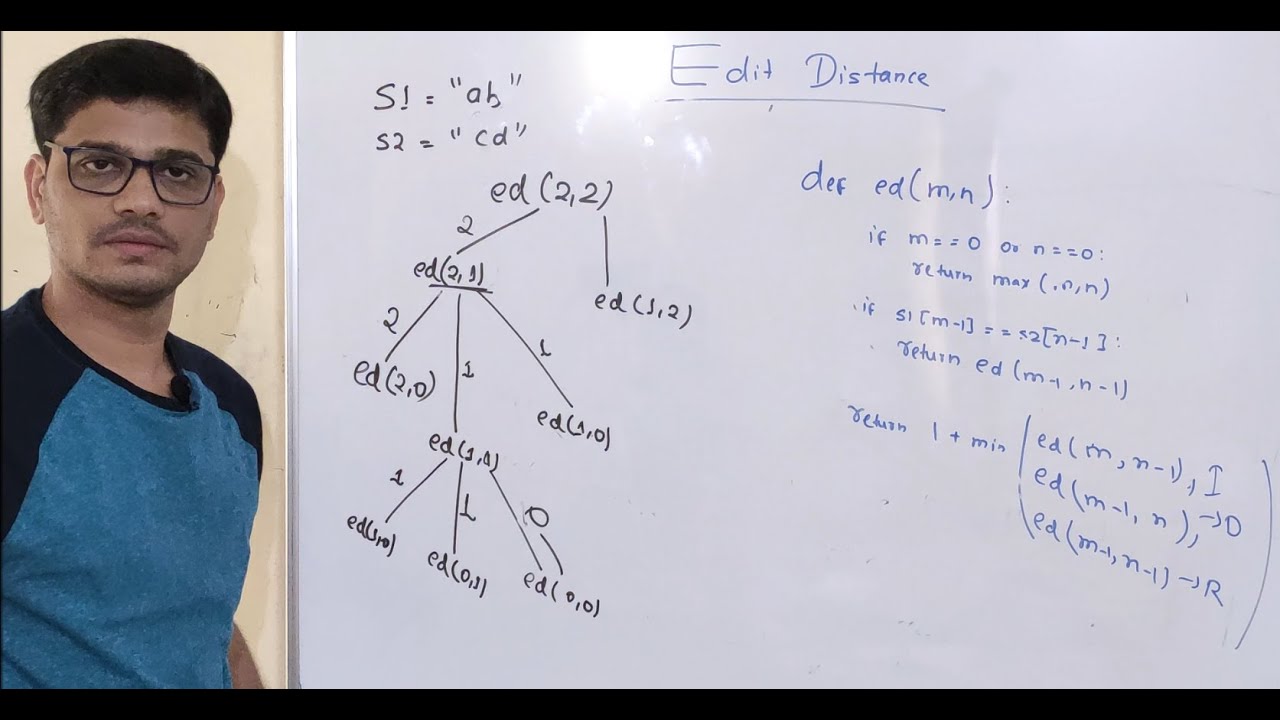 Edit Distance
S1 = "ab"
S2 = "cd"
ed(2,2)
2
ed(2,1)
ed(1,2)
2
1
1
ed(2,0)
ed(1,0)
ed(1,1)
1
1
0
ed(1,0)
ed(0,1)
ed(0,0)
def ed(m,n):
if m==0 or n==0:
return max(m,n)
if s1[m-1]==s2[n-1]:
return ed(m-1,n-1)
return 1+min(ed(m,n-1), I
ed(m-1,n),→D
ed(m-1,n-1)→R)